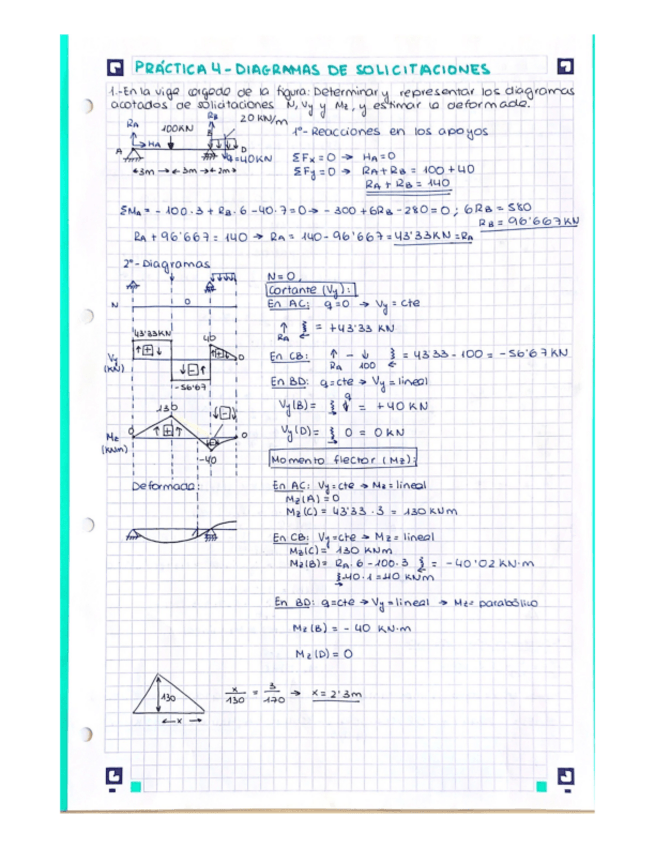 PRÁCTICA 4 - DIAGRAMAS DE SOLICITACIONES
1.- En la viga cargada de la figura: Determinar y representar los diagramas
acotados de solicitaciones N, Vy y Mz, y estimar la deformada.
RA 100KN RB 20 KN/m
HA
A B D
4=40KN
3m 3m 2m
1º- Reacciones en los apoyos
ΣFx=0 → HA=0
ΣFy=0 → RA+RB = 100+40
RA + RB = 140
ΣMA = - 100·3 + RB·6 - 40·7=0 → - 300 + 6RB - 280=0 ; 6RB = 580
RB = 96'667 KN
RA + 96'667 = 140 → RA = 140 - 96'667 = 43'33KN = RA
2º- Diagramas
N=0
Cortante (Vy):
En AC: q=0 → Vy = cte
N 0
↑ RA } = +43'33 KN
43'33KN 40
Vy (KN) 0
-56'67
En CB: ↑ RA - ↓ 100 } = 43'33 - 100 = - 56'67 KN
En BD: q=cte → Vy = lineal
Vy(B) = } q↓ = +40 KN
Vy(D) = } 0 = 0 KN
130
Mz (KNm) 0 0
-40
Momento flector (Mz):
Deformada:
En AC: Vy = cte → Mz = lineal
Mz(A) = 0
Mz(C) = 43'33 · 3 = 130 KNm
En CB: Vy = cte → Mz = lineal
Mz(C) = 130 KNm
Mz(B) = RA·6 - 100·3 } = - 40'02 KN·m
}-40·1 = -40 KNm
En BD: q=cte → Vy = lineal → Mz = parabólico
Mz(B) = - 40 KN·m
Mz(D) = 0
130
x
x/130 = 3/170 → x = 2'3m